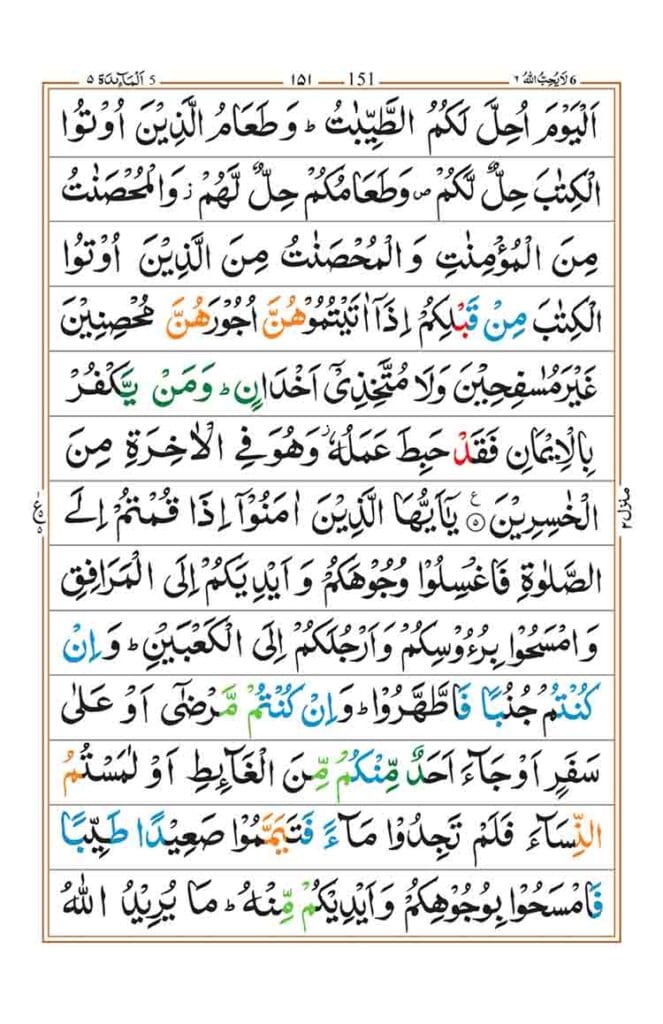 6 لَا يُحِبُّ اللهُ ٦ 151 ١٥١ 5 اَلْمَآئِدَة ٥
اَلْيَوْمَ اُحِلَّ لَكُمُ الطَّيِّبٰتُ ؕ وَ طَعَامُ الَّذِيْنَ اُوْتُوا
الْكِتٰبَ حِلٌّ لَّكُمْ ۪ وَ طَعَامُكُمْ حِلٌّ لَّهُمْ ؗ وَالْمُحْصَنٰتُ
مِنَ الْمُؤْمِنٰتِ وَالْمُحْصَنٰتُ مِنَ الَّذِيْنَ اُوْتُوا
الْكِتٰبَ مِنْ قَبْلِكُمْ اِذَاۤ اٰتَيْتُمُوْهُنَّ اُجُوْرَهُنَّ مُحْصِنِيْنَ
غَيْرَ مُسٰفِحِيْنَ وَلَا مُتَّخِذِيْۤ اَخْدَانٍ ؕ وَمَنْ يَّكْفُرْ
بِالْاِيْمَانِ فَقَدْ حَبِطَ عَمَلُهٗ ؗ وَهُوَ فِي الْاٰخِرَةِ مِنَ
الْخٰسِرِيْنَ ۵ يٰۤاَيُّهَا الَّذِيْنَ اٰمَنُوْۤا اِذَا قُمْتُمْ اِلَى
الصَّلٰوةِ فَاغْسِلُوْا وُجُوْهَكُمْ وَ اَيْدِيَكُمْ اِلَى الْمَرَافِقِ
وَ امْسَحُوْا بِرُءُوْسِكُمْ وَ اَرْجُلَكُمْ اِلَى الْكَعْبَيْنِ ؕ وَ اِنْ
كُنْتُمْ جُنُبًا فَاطَّهَّرُوْا ؕ وَ اِنْ كُنْتُمْ مَّرْضٰۤى اَوْ عَلٰى
سَفَرٍ اَوْ جَآءَ اَحَدٌ مِّنْكُمْ مِّنَ الْغَآئِطِ اَوْ لٰمَسْتُمُ
النِّسَآءَ فَلَمْ تَجِدُوْا مَآءً فَتَيَمَّمُوْا صَعِيْدًا طَيِّبًا
فَامْسَحُوْا بِوُجُوْهِكُمْ وَ اَيْدِيْكُمْ مِّنْهُ ؕ مَا يُرِيْدُ اللهُ
منزل ٢